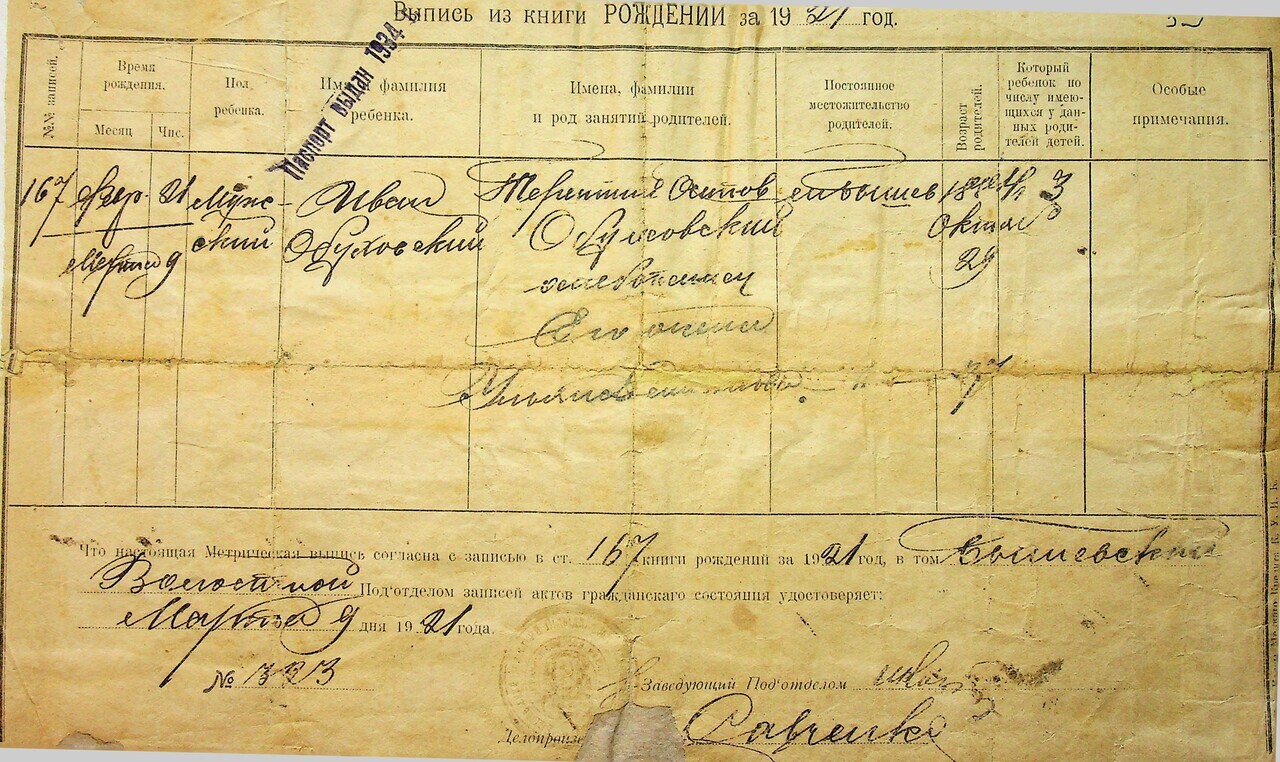 Выпись из книги РОЖДЕНИЙ за 1921 год.
Паспорт выдан 1934
№№ записей.
Время рождения.
Месяц
Чис.
Пол ребенка.
Имя фамилия ребенка.
Имена, фамилии
и род занятий родителей.
Постоянное местожительство родителей.
Возраст родителей.
Который ребенок по числу имеющихся у данных родителей детей.
Особые примечания.
167 Февр. 21 Мужс- Иван Терентий Осипов 3
ский Обуховский Обуховский
Марта 9 29
хлебопашец
Его жена
37
Что настоящая Метрическая выпись согласна с записью в ст. 167 книги рождений за 1921 год, в том
Волостной Под'отделом записей актов гражданскаго состояния удостоверяет:
Марта 9 дня 1921 года.
№ 323
Заведующий Под'отделом
Делопроиз Савченко